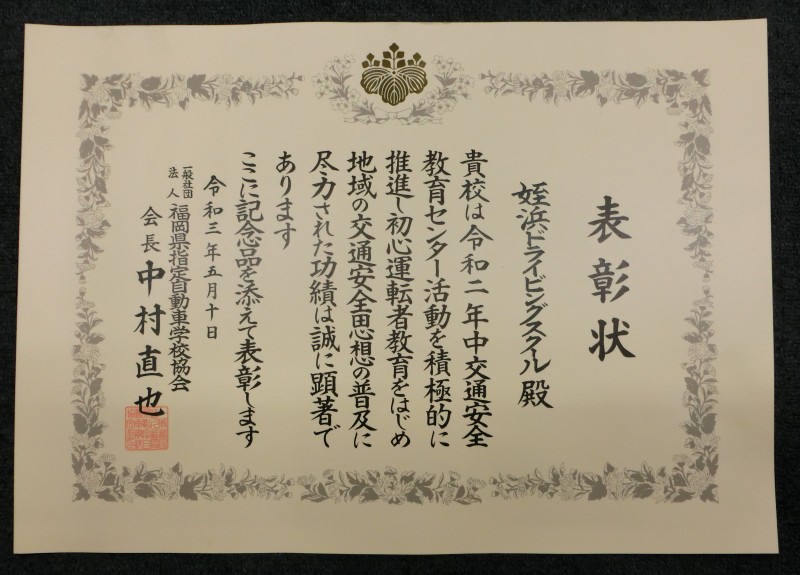 表彰状
姪浜ドライビングスクール 殿
貴校は令和二年中交通安全
教育センター活動を積極的に
推進し初心運転者教育をはじめ
地域の交通安全思想の普及に
尽力された功績は誠に顕著で
あります
ここに記念品を添えて表彰します
令和三年五月十日
一般社団法人 福岡県指定自動車学校協会
会長 中村直也